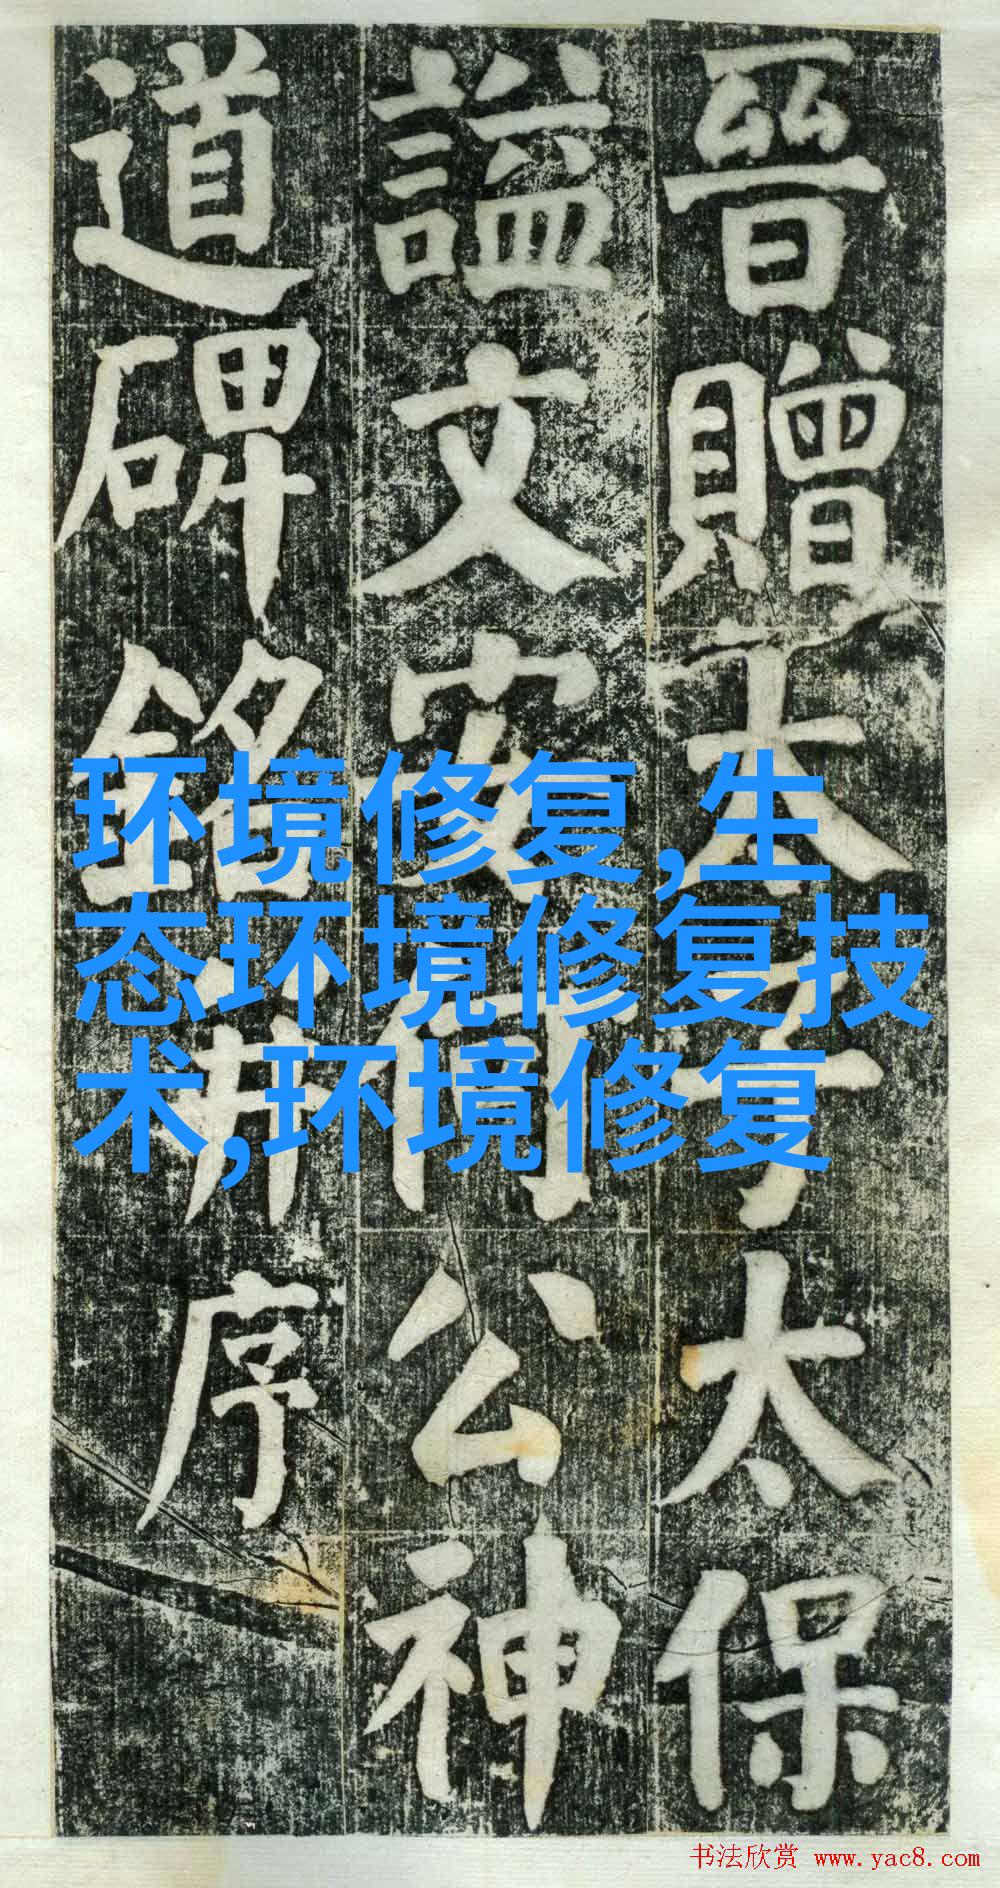 晉贈太子太保
謚文安何公神
道碑銘并序
环境修复,生
态环境修复技
术,环境修复
书法欣赏 www.yac8.com